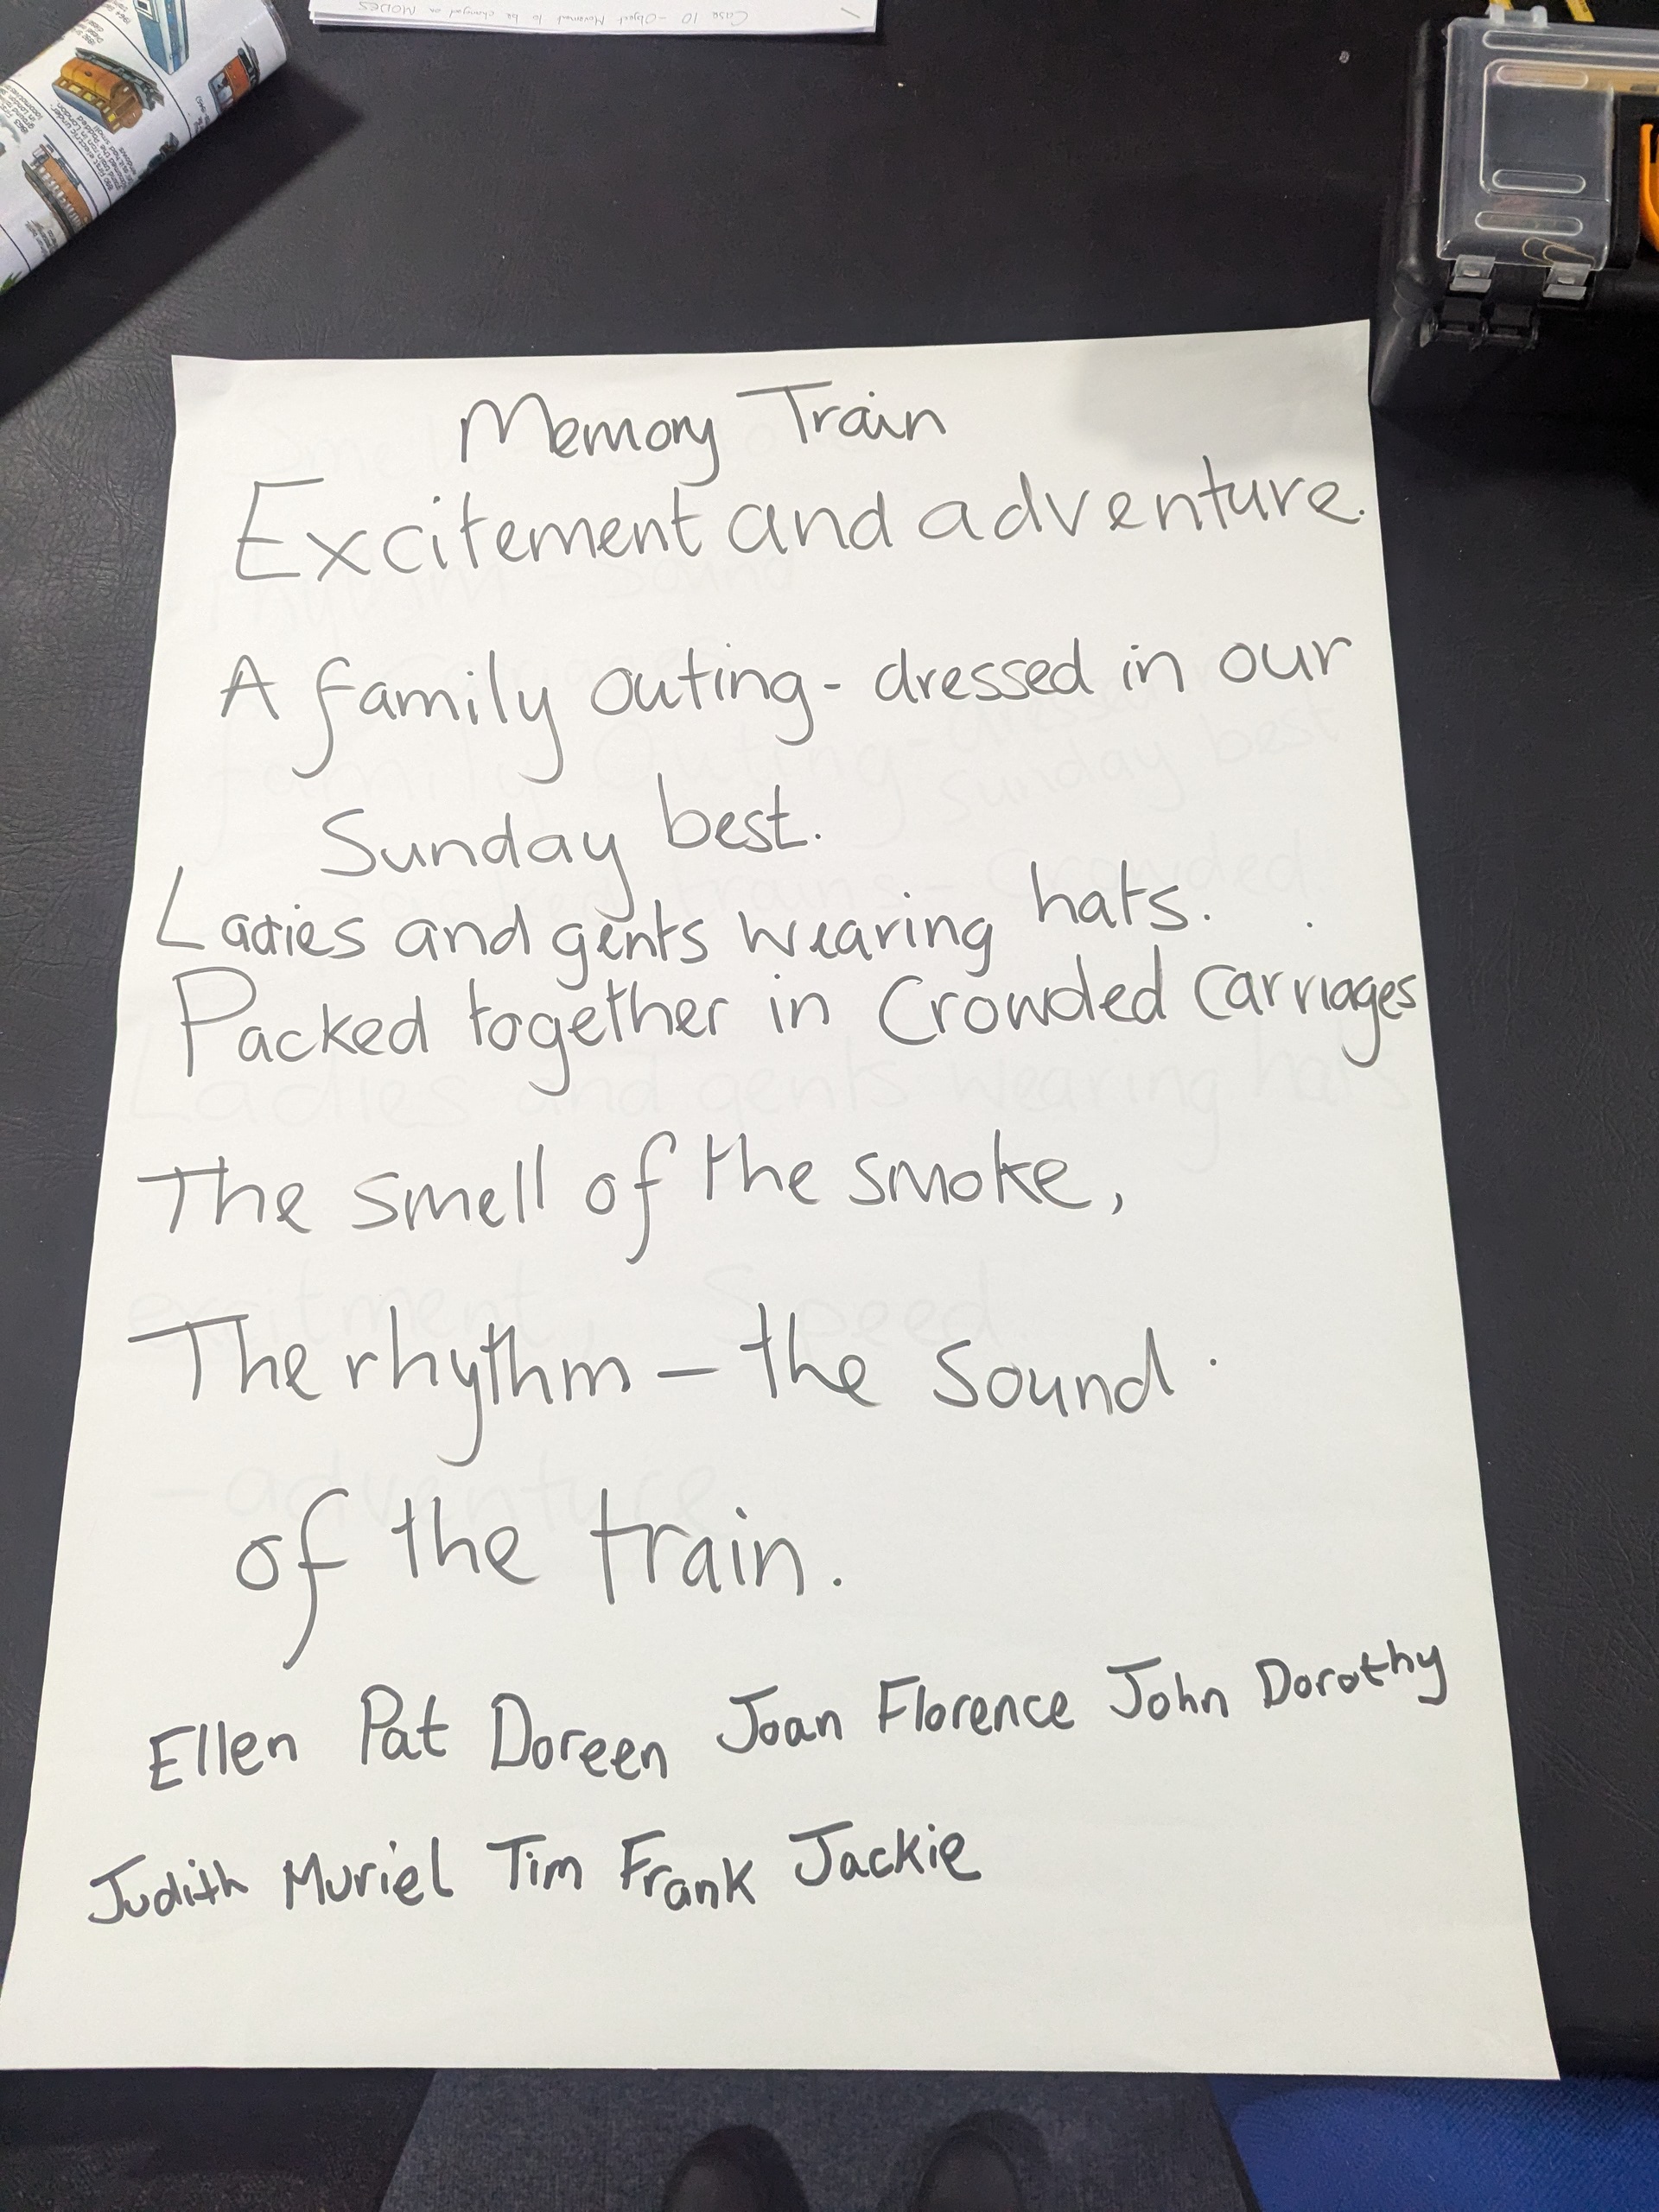 Case 10 - Object Movement to be changed on MODES
Memory Train
Excitement and adventure.
A family outing - dressed in our
Sunday best.
Ladies and gents wearing hats.
Packed together in Crowded carriages
The smell of the smoke,
The rhythm – the sound
of the train.
Ellen Pat Doreen Joan Florence John Dorothy
Judith Muriel Tim Frank Jackie